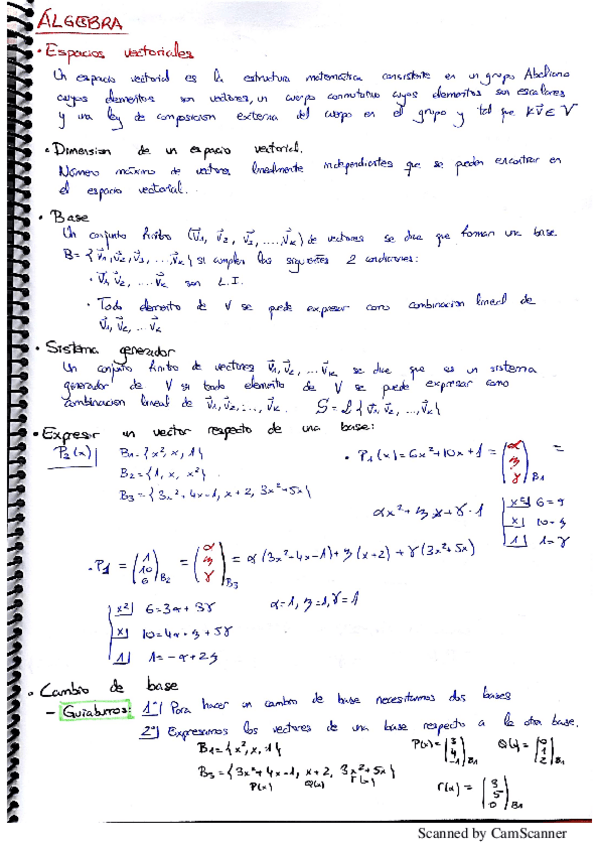 ÁLGEBRA
• Espacios vectoriales
Un espacio vectorial es la estructura matemática consistente en un grupo Abeliano
cuyos elementos son vectores, un cuerpo conmutativo cuyos elementos son escalares
y una ley de composicion externa del cuerpo en el grupo y tal que KV⃗ ∈ V
• Dimension de un espacio vectorial.
Número máximo de vectores linealmente independientes que se pueden encontrar en
el espacio vectorial.
• Base
Un conjunto finito (v⃗1, v⃗2, v⃗3, ...., v⃗k) de vectores se dice que forman una base
B = {v⃗1, v⃗2, v⃗3, ..., v⃗k} si cumplen las siguientes 2 condiciones:
• v⃗1, v⃗2, ... v⃗k son L.I.
• Todo elemento de V se puede expresar como combinacion lineal de
v⃗1, v⃗2, ... v⃗k
• Sistema generador
Un conjunto finito de vectores v⃗1, v⃗2, ... v⃗k se dice que es un sistema
generador de V si todo elemento de V se puede expresar como
combinacion lineal de v⃗1, v⃗2, ..., v⃗k. S = L{v⃗1, v⃗2, ..., v⃗k}
• Expresar un vector respecto de una base:
P2(x) B1 = {x², x, 1}
B2 = {1, x, x²}
B3 = {3x²+4x-1, x+2, 3x²+5x}
• P1(x) = 6x²+10x+1 = (α β γ)B1 =
αx² + β x + γ · 1
x² 6 = α
x 10 = β
1 1 = γ
• P1 = (1 10 6)B2 = (α β γ)B3 = α(3x²-4x-1) + β(x+2) + γ(3x²+5x)
x² 6 = 3α + 3γ α=1, β=1, γ=1
x 10 = 4α + β + 5γ
1 1 = -α + 2β
• Cambio de base
- Guiaburros: 1º/ Para hacer un cambio de base necesitamos dos bases
2º/ Expresamos los vectores de una base respecto a la otra base.
B1 = {x², x, 1} P(x) = (3 4 -1)B1 Q(x) = (0 1 2)B1
B3 = {3x²+4x-1, x+2, 3x²+5x}
P(x) Q(x) r(x) r(x) = (3 5 0)B1
Scanned by CamScanner